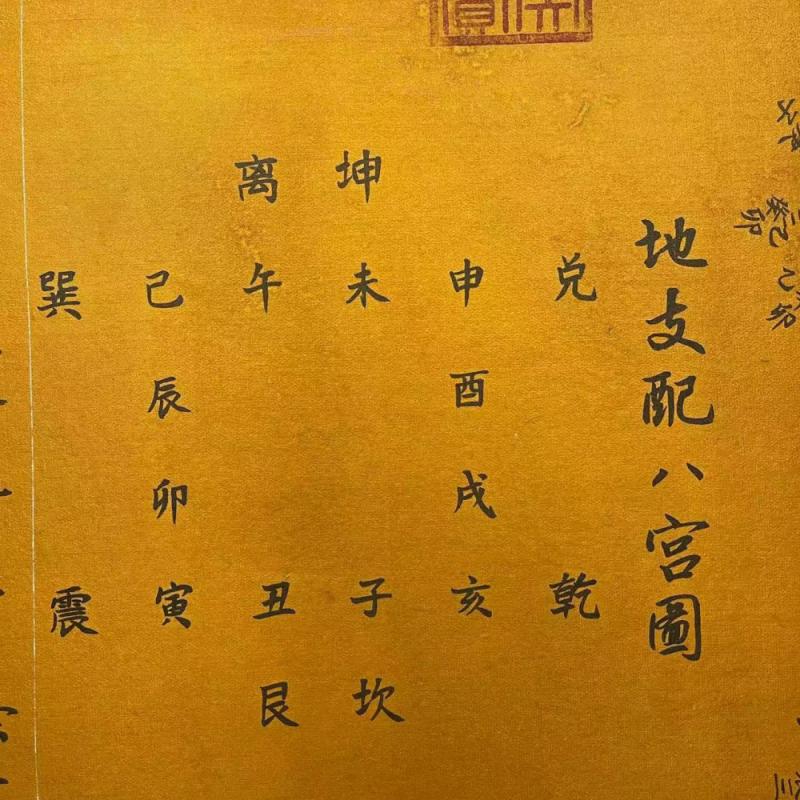 地支配八宫圖
兑 乾
申酉戌亥
坤未 子坎
离午 丑艮
己辰卯寅
巽 震